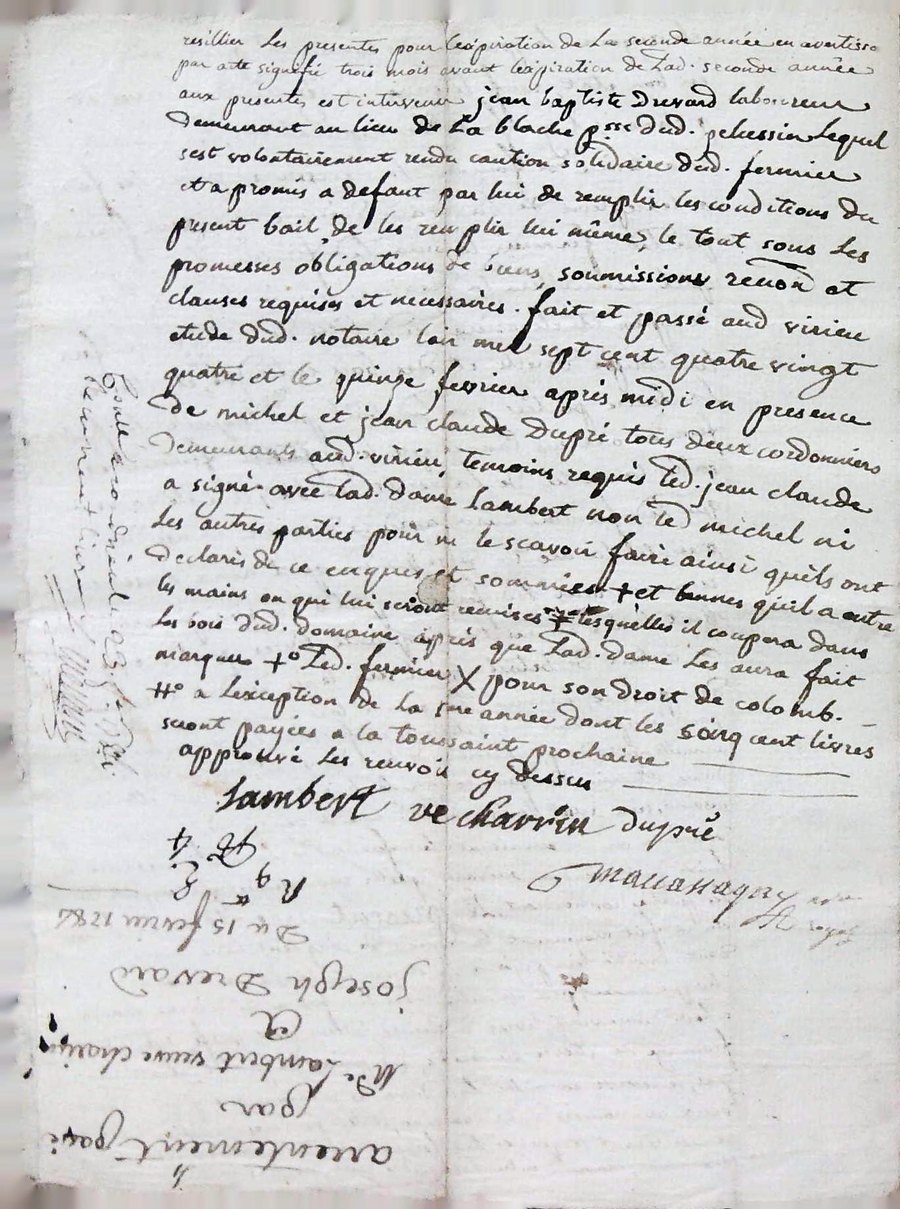 resillier Les presentes pour lexpiration de La seconde année en avertisse
par acte signefié trois mois avant lexpiration de Lad. seconde année
aux presentes est intervenu jean baptiste Drevard laboureur
demeurant au lieu de La blache psse dud. pelussin Lequel
sest volontairement rendu caution solidaire dud. fermier
et a promis a defaut par lui de remplir les conditions du
present bail de les remplir lui même, le tout sous Les
promesses obligations de biens, soumissions renon et
clauses requises et necessaires. fait et passé aud virieu
etude dud. notaire lan mil sept cent quatre vingt
quatre et le quinze fevrier après midi en presence
de michel et jean claude Dupré tous deux cordonniers
demeurants aud. virieu, temoins requis led. jean claude
a signé avec lad. dame Lambert non led michel ni
les autres parties pour ne le scavoir faire ainsi quels ont
declarés de ce enquis et sommées + et bennes quil a entre
les mains ou qui lui seront remises lesquelles il coupera dans
les bois dud. domaine après que Lad. dame Les aura fait
marquer +o Led. fermier X pour son droit de colomb.
++o a Lexception de la année dont les cinq cent livres
seront payées a la toussaint prochaine
approuvé Les renvois cy dessus
Lambert ve Charrin Dupré
royal
arrentement passé
par
Mde Lambert veuve charin
A
joseph Drevard
Du 15 fevrier 1784